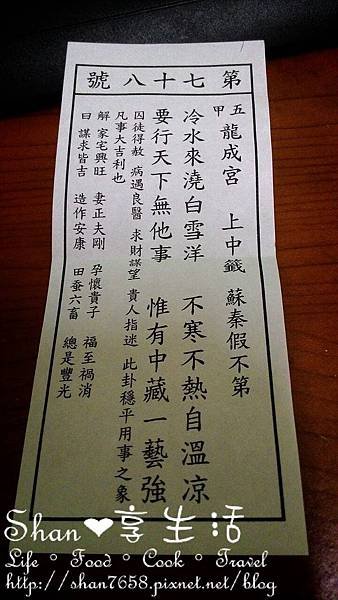 第七十八號
五甲 龍成宮 上中籤 蘇秦假不第
冷水來澆白雪洋 不寒不熱自溫凉
要行天下無他事 惟有中藏一藝強
囚徒得赦 病遇良醫 求財謀望 貴人指迷 此卦穩平用事之象
凡事大吉利也
解 家宅興旺 妻正夫剛 孕懷貴子 福至禍消
曰 謀求皆吉 造作安康 田蚕六畜 總是豐光
Shan❤享生活
Life。Food。Cook。Travel
http://shan7658.pixnet.net/blog